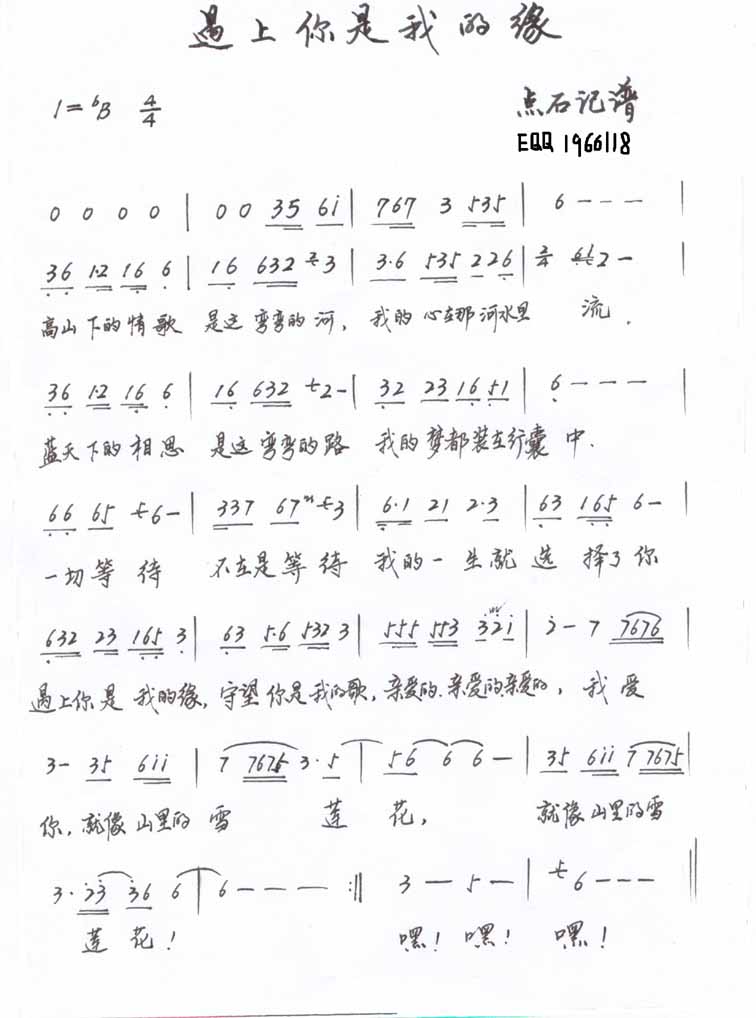 遇上你是我的缘
1=ᵇB 4/4
点石记谱
EQQ 1966118
0 0 0 0 | 0 0 35 6i | 767 3 535 | 6 - - - |
36 1·2 16 6 | 16 632 3 | 3·6 535 226 | 2/4 2 - |
高山下的情歌 是这弯弯的河, 我的心在那河水里 流.
36 1·2 16 6 | 16 632 2 - | 32 23 16 51 | 6 - - - |
蓝天下的相思 是这弯弯的路 我的梦都装在行囊中.
66 65 6 - | 337 67 3 | 6·1 21 2·3 | 63 165 6 - |
一切等待 不在是等待 我的一生就选择了你
632 23 165 3 | 63 5·6 532 3 | 555 553 32i | 2 - 7 7676 |
遇上你是我的缘, 守望你是我的歌, 亲爱的.亲爱的.亲爱的, 我爱
3 - 35 6ii | 7 7675 3·5 | 56 6 6 - | 35 6ii 7 7675 |
你, 就像山里的雪 莲花, 就像山里的雪
3·23 36 6 | 6 - - - :|| 3 - 5 - | 6 - - - ||
莲花! 嘿! 嘿! 嘿!